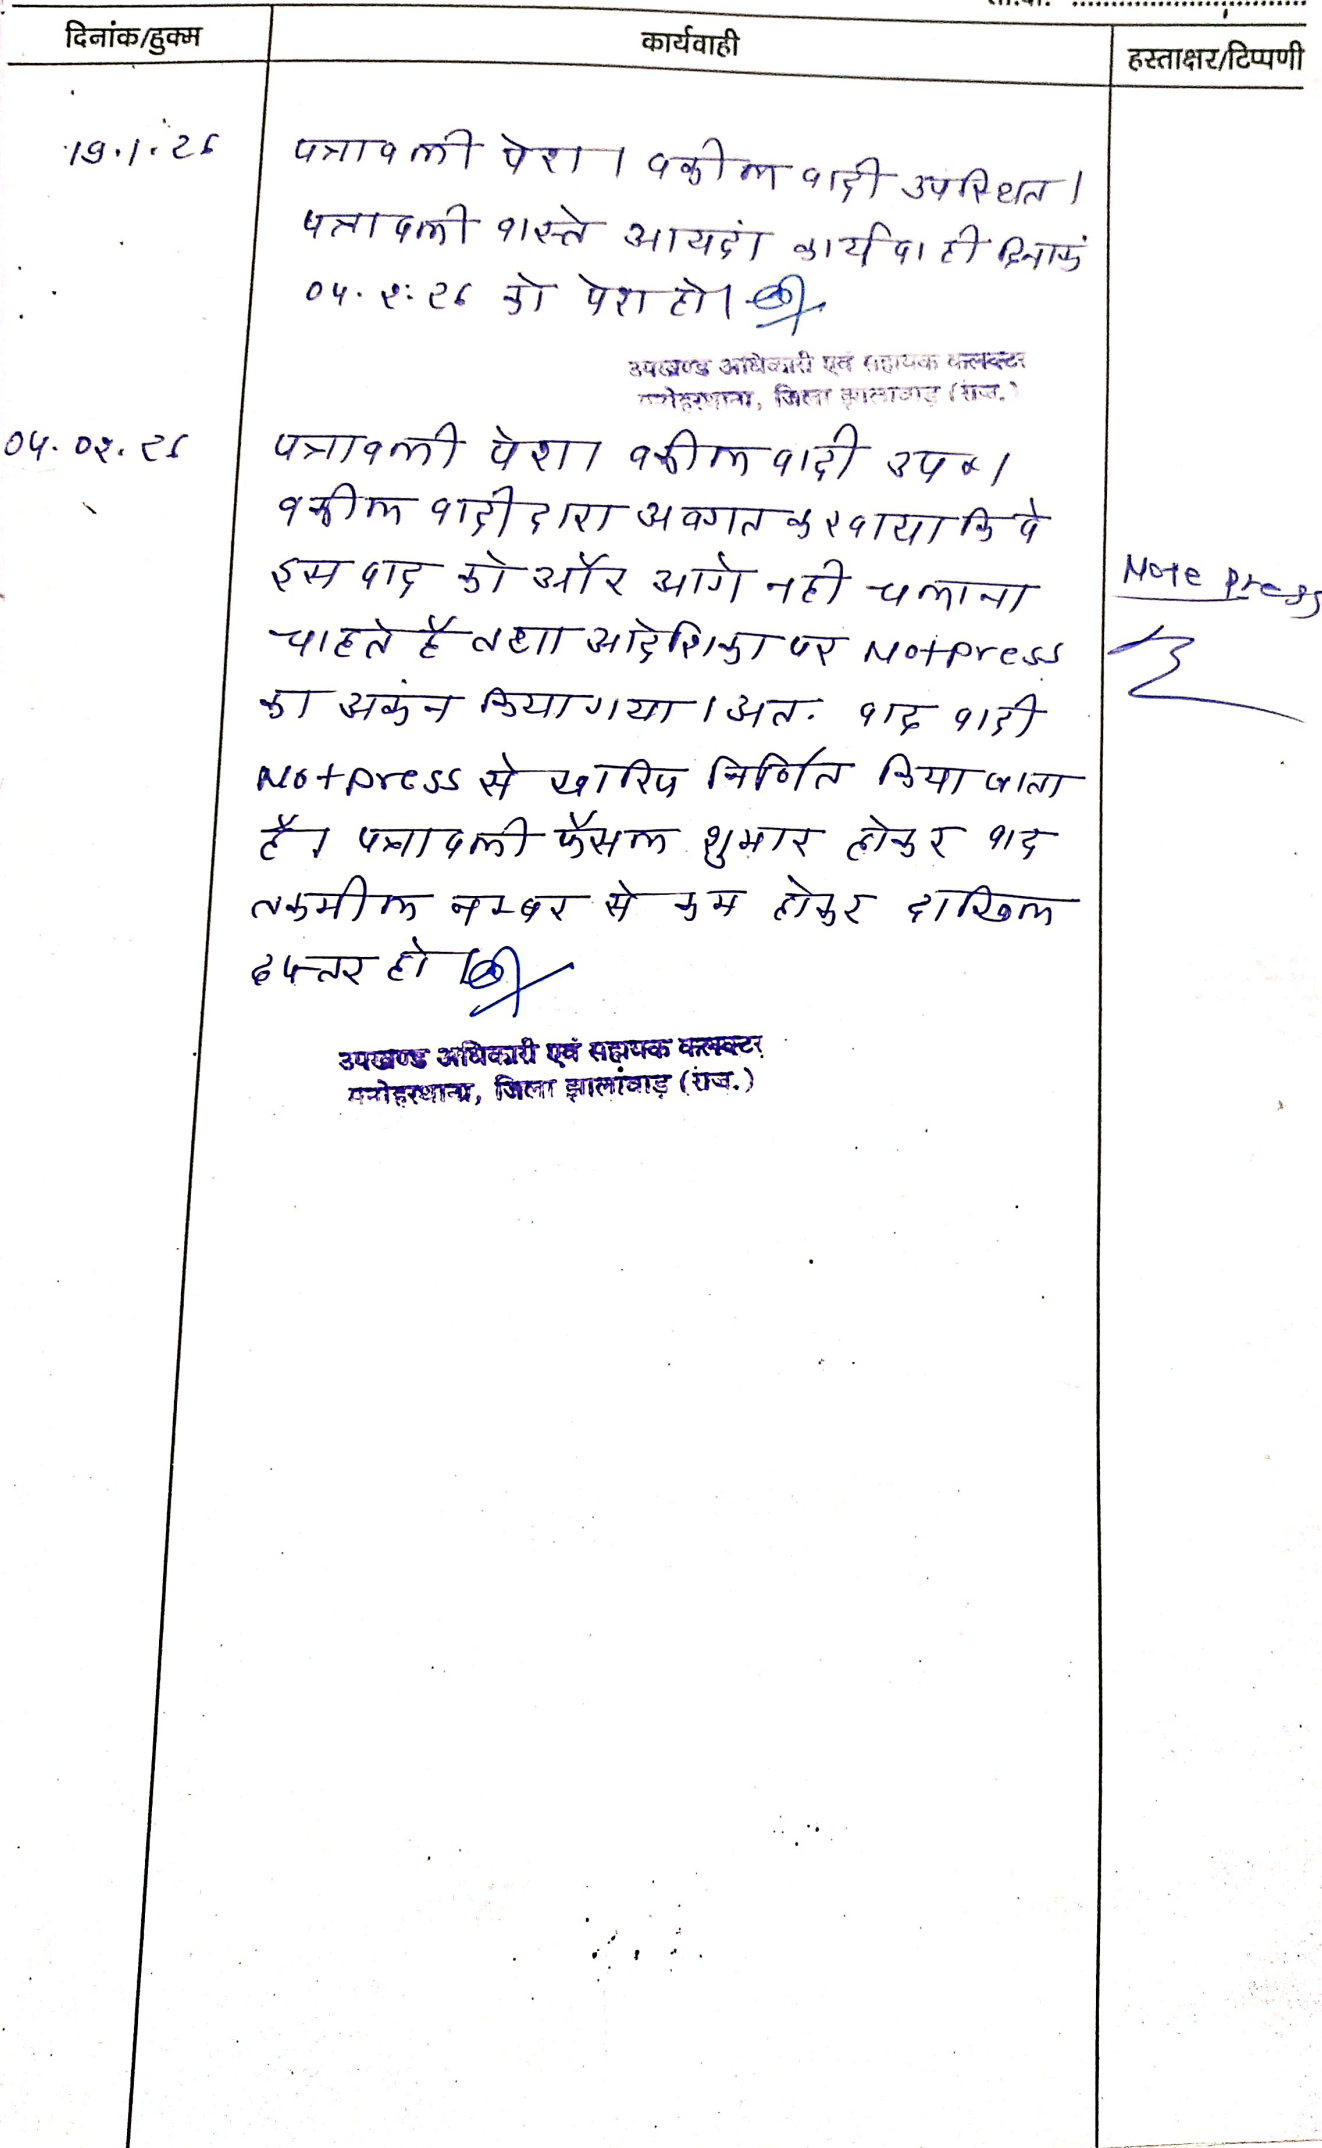 दिनांक/हुक्म कार्यवाही हस्ताक्षर/टिप्पणी
19.1.26 पत्रावली पेश। वकील वादी उपस्थित।
पत्रावली वास्ते आयदां कार्यवाही दिनाकं
04.२.२6 को पेश हो।
उपखण्ड अधिकारी एवं सहायक कलक्टर
मनोहरथाना, जिला झालावाड़ (राज.)
04.0२.२6 पत्रावली पेश। वकील वादी उप०।
वकील वादी द्वारा अवगत करवाया कि वे
इस वाद को और आगे नही चलाना
Note Press
चाहते है तथा आदेशिका पर Notpress
का अकंन किया गया। अत. वाद वादी
Notpress से खारिज निर्णित किया जाता
है। पत्रावली फैसल शुमार होकर बाद
तकमील नम्बर से कम होकर दाखिल
दफ्तर हो।
उपखण्ड अधिकारी एवं सहायक कलक्टर
मनोहरथाना, जिला झालांवाड़ (राज.)